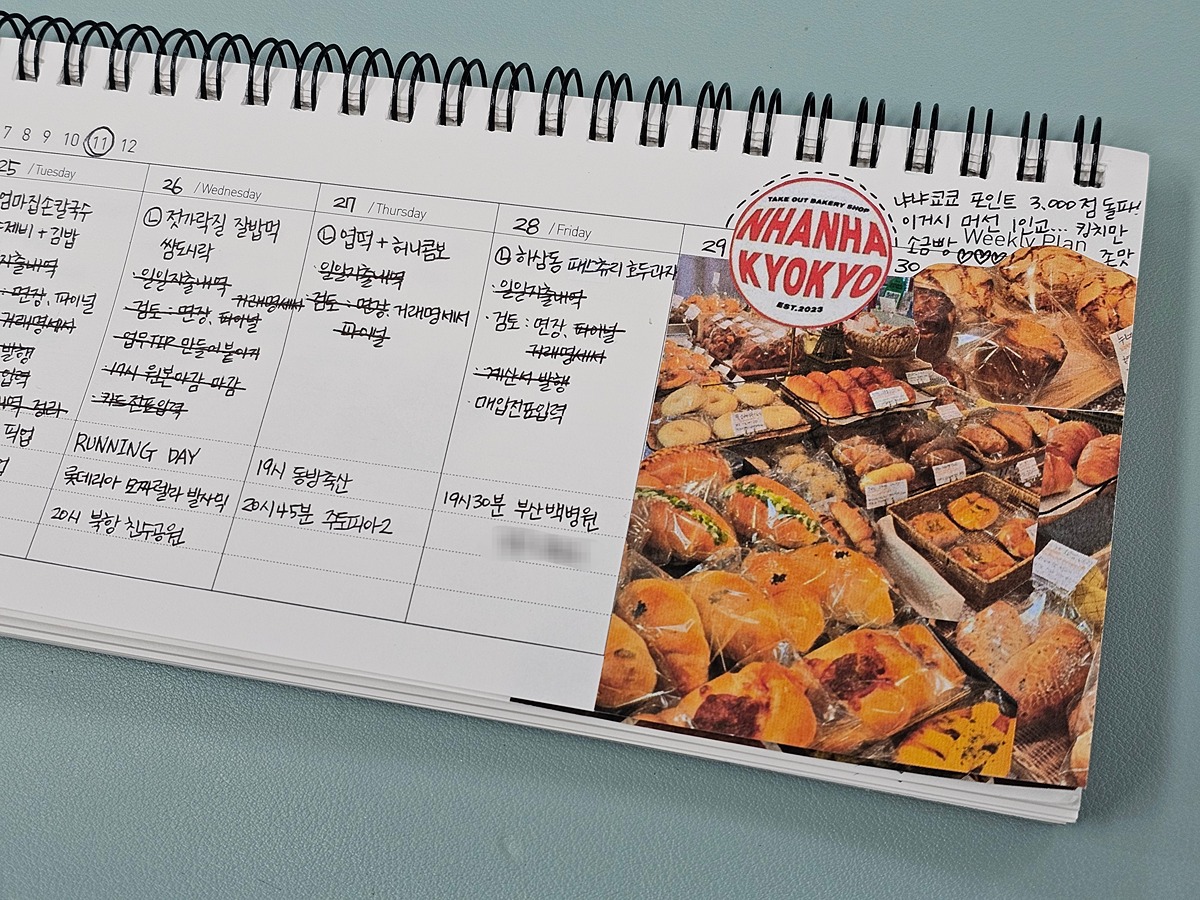 7 8 9 10 11 12
25 /Tuesday
엄마집손칼국수
수제비 + 김밥
: 면장, 파이널
거래명세서
발행
입력
픽업
26 /Wednesday
Ⓛ 젓가락질 잘밥먹
쌈도시락
· 일일지출내역
거래명세서
· 검토 : 면장, 파이널
· 업무TIP 만들어붙이기
· 19시 원본마감 마감
· 카드전표입력
RUNNING DAY
롯데리아 모짜렐라 발사믹
20시 북항 친수공원
27 /Thursday
Ⓛ 엽떡 + 허니콤보
· 일일지출내역
· 검토 : 면장, 거래명세서
파이널
19시 동방축산
20시45분 주토피아2
28 /Friday
Ⓛ 하삼동 패스츄리 호두과자
· 일일지출내역
· 검토 : 면장, 파이널
거래명세서
· 계산서 발행
· 매입전표입력
19시30분 부산백병원
29
30
TAKE OUT BAKERY SHOP
NHANHA
KYOKYO
EST.2023
냐냐쿄쿄 포인트 3,000점 돌파!
이거시 머선 1인교... 킹치만
소금빵 ♡♡♡ 존맛
Weekly Plan